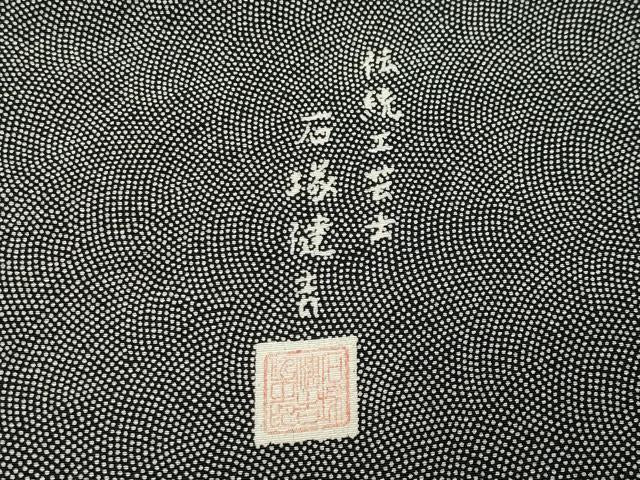 伝統工芸士
石塚健吉